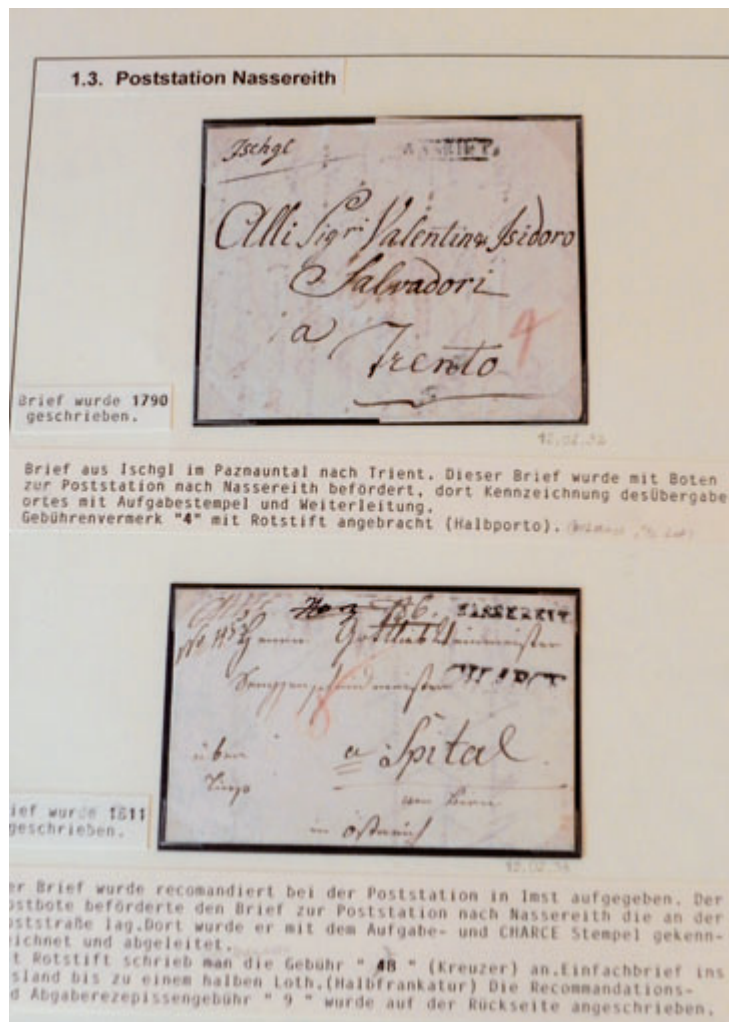 1.3. Poststation Nassereith
Ischgl
Alli Sigri Valentino Isidoro
Salvadori
a
4
Trento
Brief wurde 1790
geschrieben.
12.02.32
Brief aus Ischgl im Paznauntal nach Trient. Dieser Brief wurde mit Boten
zur Poststation nach Nassereith befördert, dort Kennzeichnung desÜbergabe
ortes mit Aufgabestempel und Weiterleitung.
Gebührenvermerk "4" mit Rotstift angebracht (Halbporto).
NASSEREIT
Gottlieb
CHARCE
über
a Spital
in
ief wurde 1811
geschrieben.
er Brief wurde recomandiert bei der Poststation in Imst aufgegeben. Der
ostbote beförderte den Brief zur Poststation nach Nassereith die an der
oststraße lag.Dort wurde er mit dem Aufgabe- und CHARCE Stempel gekenn-
eichnet und abgeleitet.
t Rotstift schrieb man die Gebühr " 48 " (Kreuzer) an.Einfachbrief ins
sland bis zu einem halben Loth.(Halbfrankatur) Die Recommandations-
d Abgaberezepissengebühr " 9 " wurde auf der Rückseite angeschrieben.